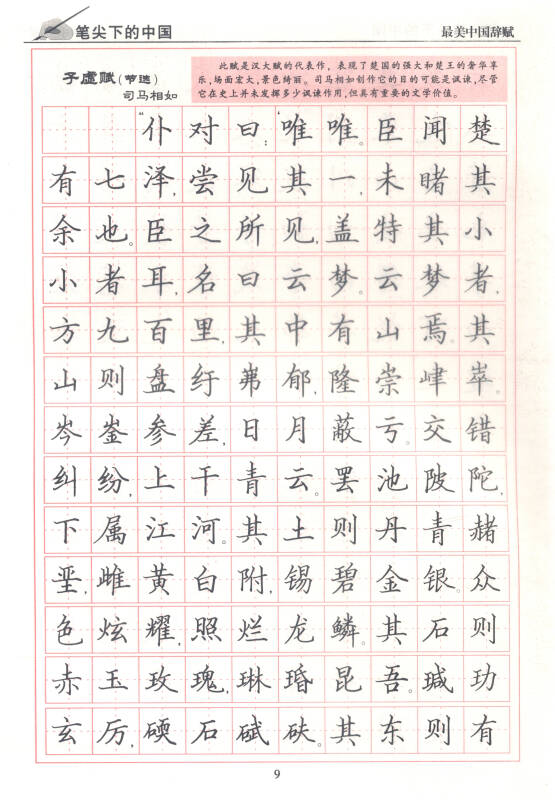 笔尖下的中国
最美中国辞赋
子虚赋(节选)
司马相如
此赋是汉大赋的代表作，表现了楚国的强大和楚王的奢华享
乐，场面宏大，景色绮丽。司马相如创作它的目的可能是讽谏，尽管
它在史上并未发挥多少讽谏作用，但具有重要的文学价值。
“仆对曰：‘唯唯。臣闻楚
有七泽，尝见其一，未睹其
余也。臣之所见，盖特其小
小者耳，名曰云梦。云梦者，
方九百里，其中有山焉。其
山则盘纡茀郁，隆崇嵂崒。
岑崟参差，日月蔽亏。交错
纠纷，上干青云。罢池陂陀，
下属江河。其土则丹青赭
垩，雌黄白附，锡碧金银。众
色炫耀，照烂龙鳞。其石则
赤玉玫瑰，琳瑉昆吾。瑊玏
玄厉，碝石碔砆。其东则有
9